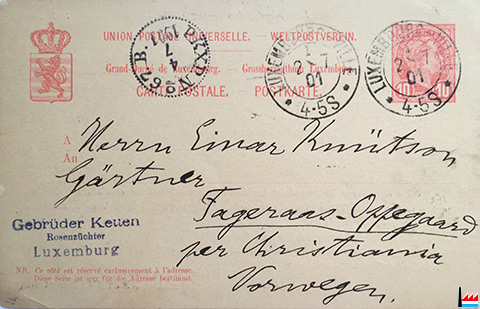 UNION POSTALE UNIVERSELLE. WELTPOSTVEREIN.
Grand-Duché de Luxembourg. Grossherzogthum Luxemburg
CARTE POSTALE. POSTKARTE.
LUXEMBOURG-VILLE
2-7
01
* 4-5S *
LUXEMBOURG-VILLE
2-7
01
* 4-5S *
10 10
4
7
1901
A
An
Herrn Einar Knütson
Gärtner
Fageraas-Oppegaard
per Christiania
Norwegen.
Gebrüder Ketten
Rosenzüchter
Luxemburg
NB. Ce côté est réservé exclusivement à l'adresse.
Diese Seite ist nur für die Adresse bestimmt.